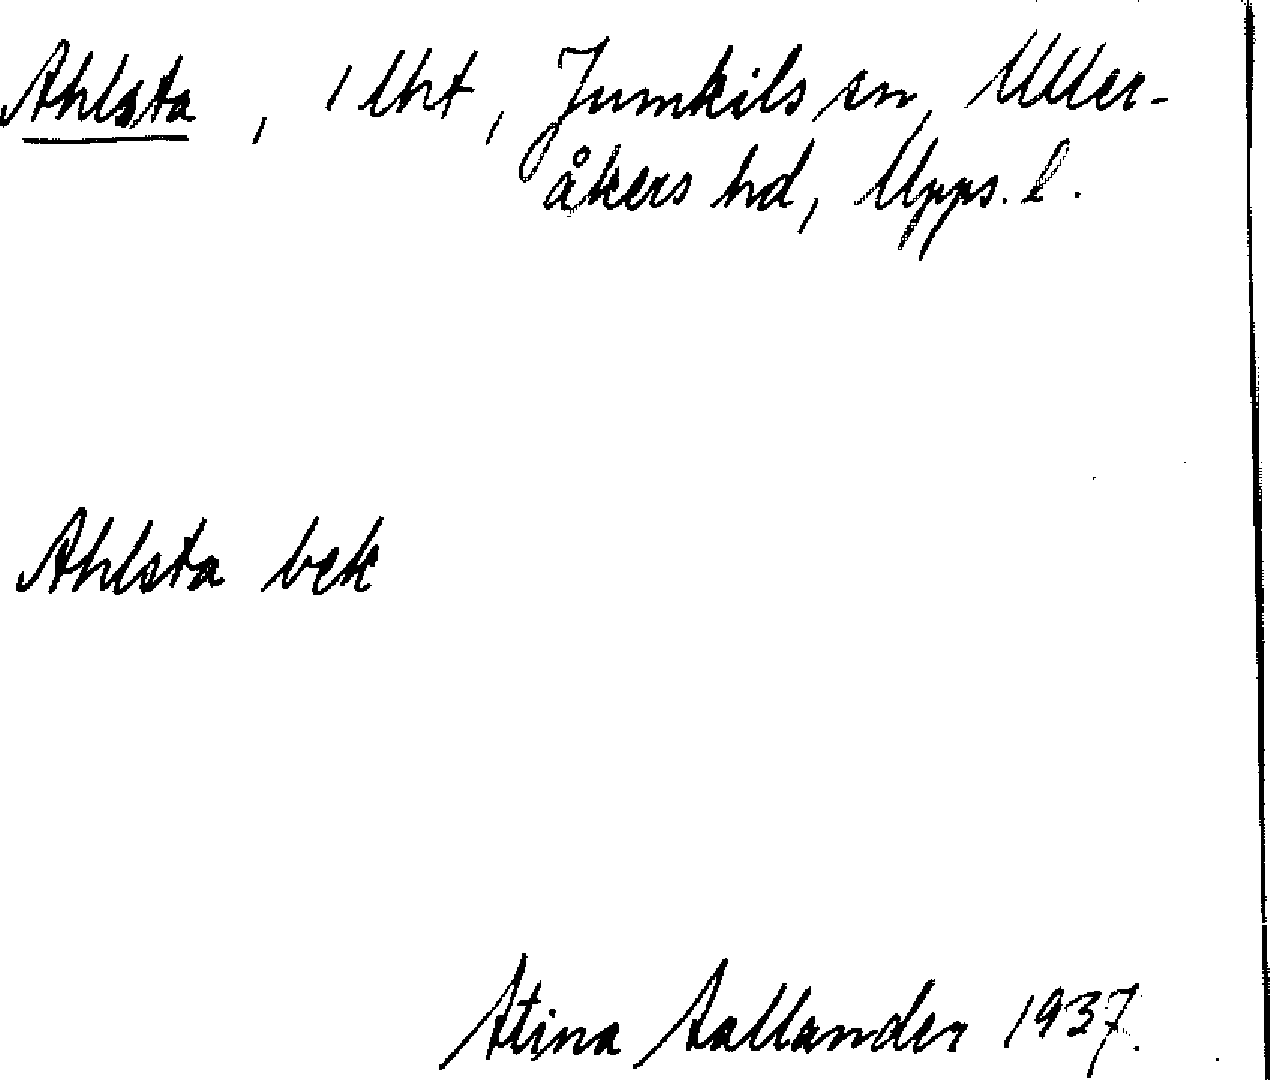 Ahlsta, 1 lht, Jumkils sn, Uller-
åkers hd, Upps. l.
Ahlsta bek
Stina Sallander 1937.